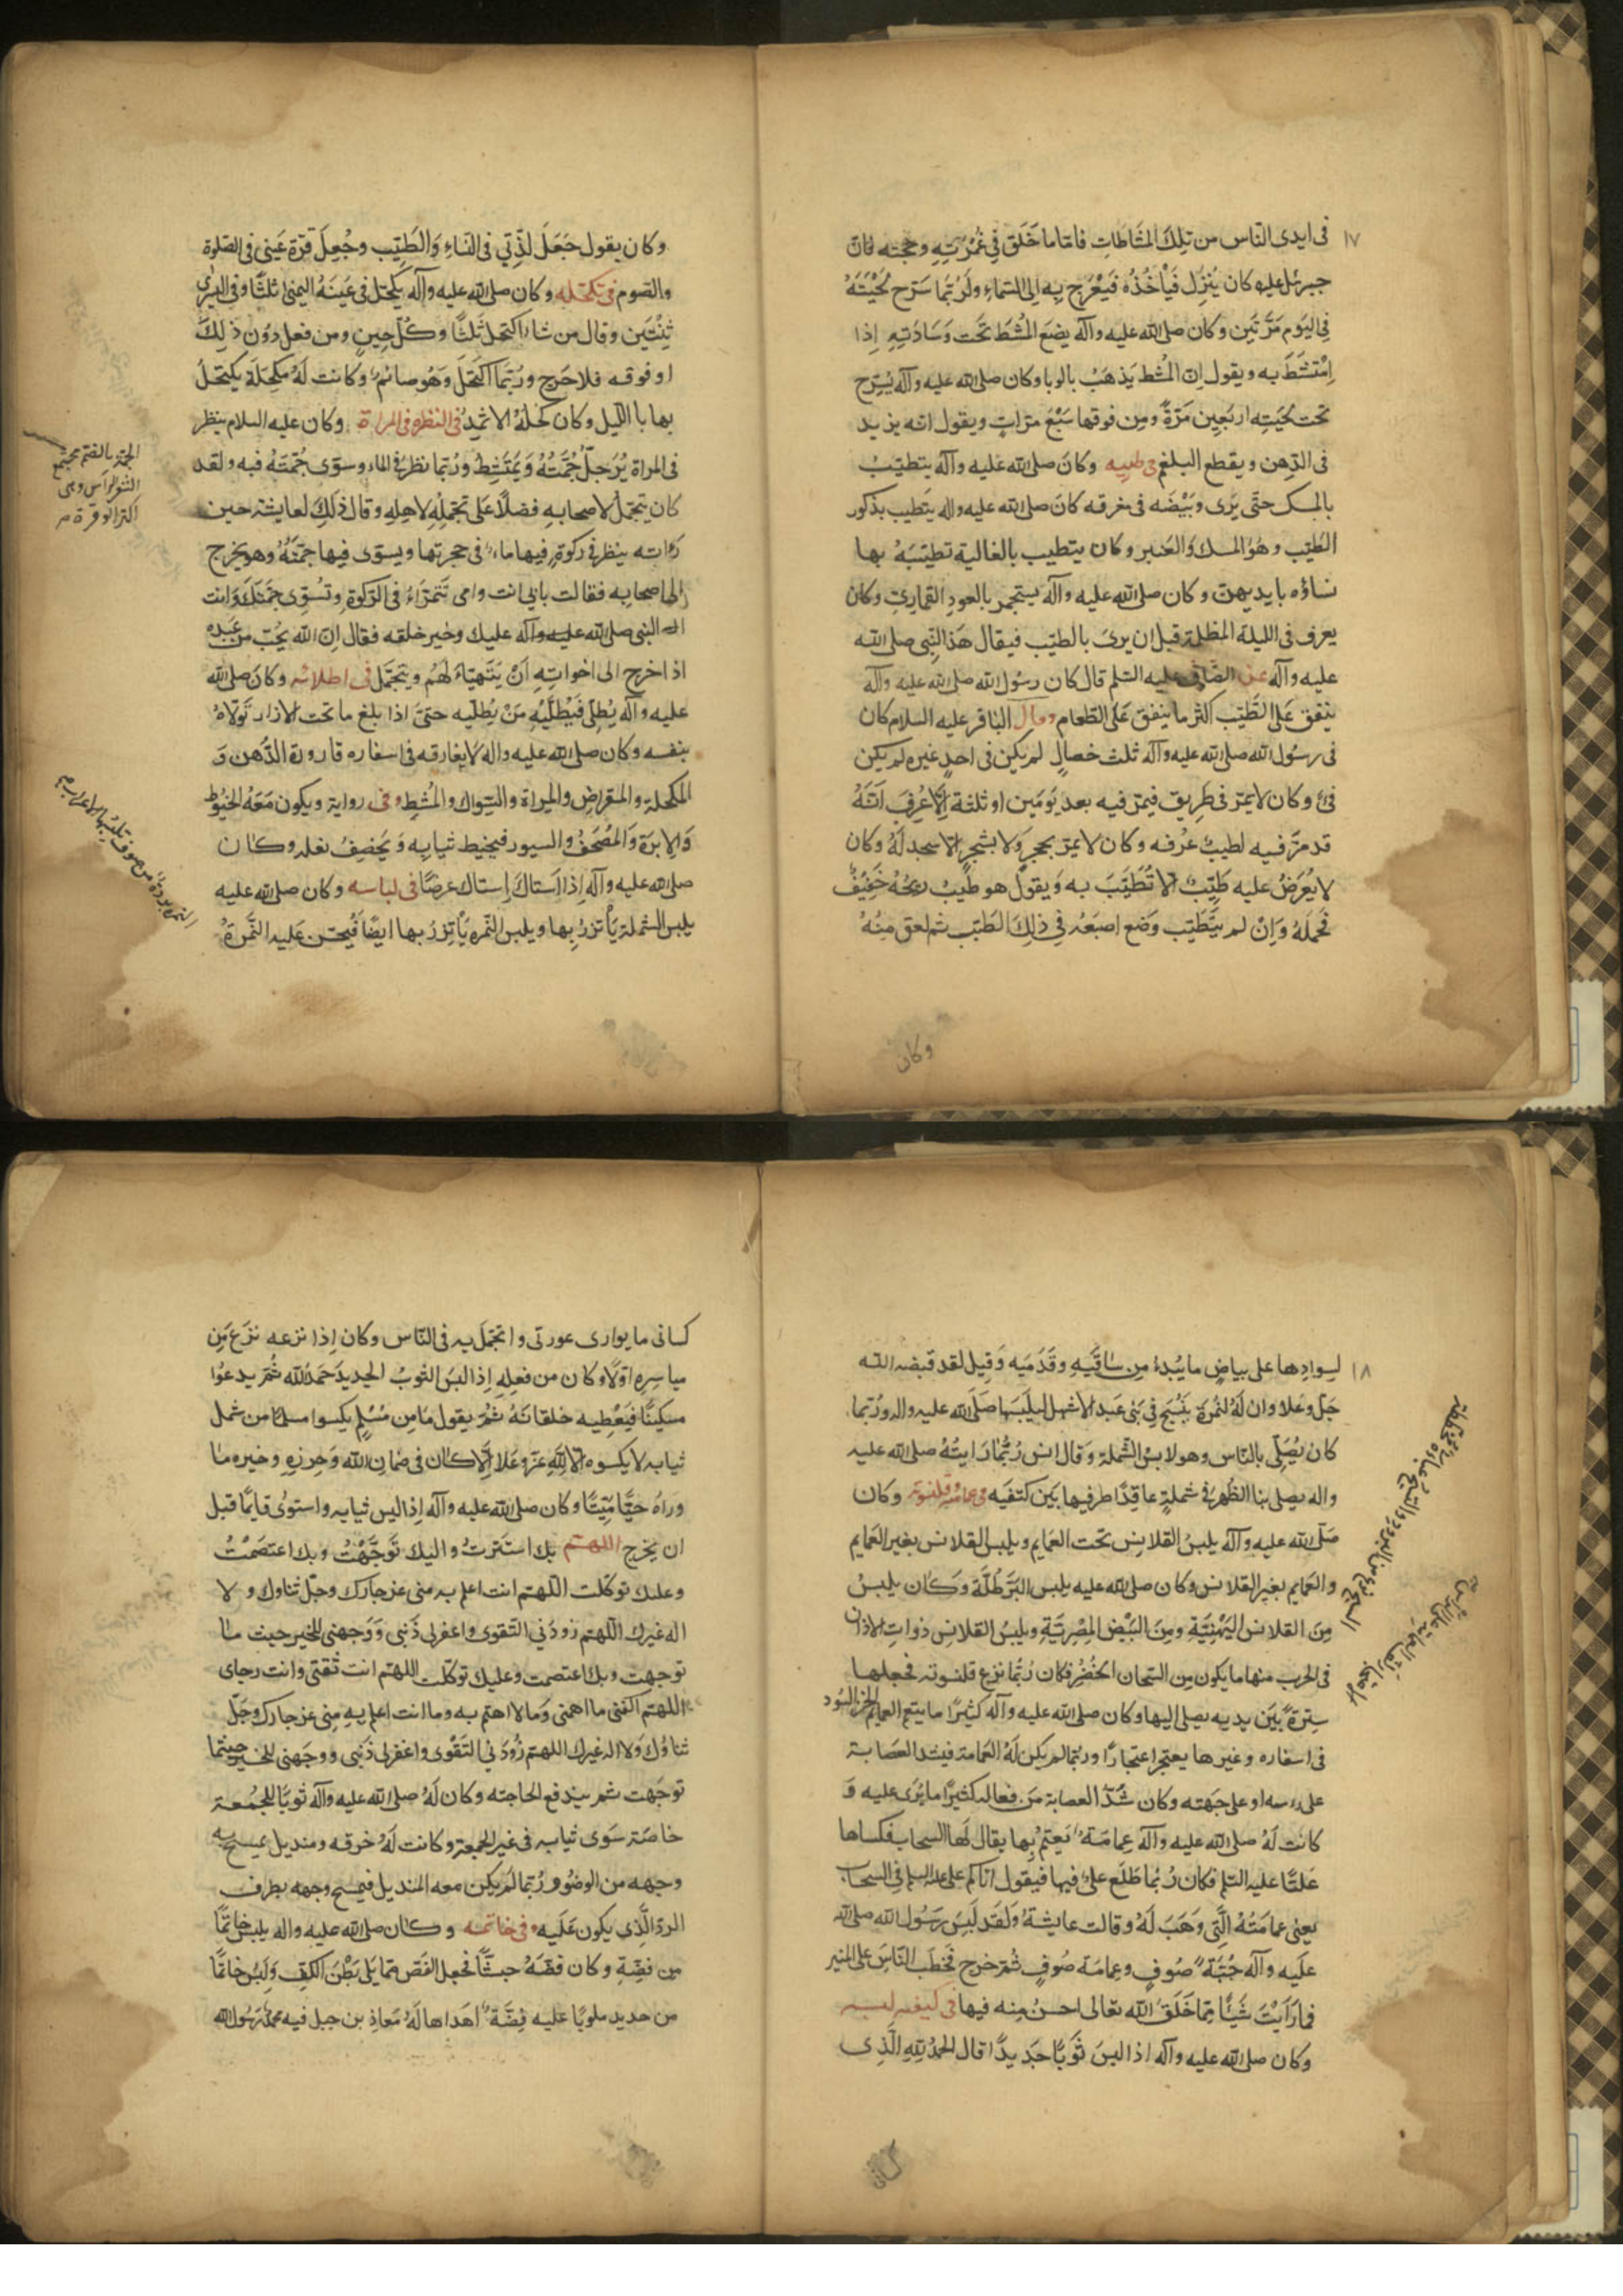 ١٧
فى ايدى النّاس من تِلكَ المشّاطاتِ فامّا ما حَلَق فى عُمرَتِهِ وحجّته فانّ
جبرئل عليه كان يَنزِل فَيَأخُذُه فَيَعْرج بِه اِلى السّماءِ ولَرُبّما سَرّح لحْيَتَهُ
فِى اليَوم مَرّتَين وكان صلى الله عليه وآله يضَع المُشطَ تحَت وسَادَتِهِ اِذا
اِمْتَشَطَ به ويقول اِنّ المُشط يَذهَبُ بالوبا وكان صلى الله عليه وآله يُسَرّح
تحت لحيَتِه اربَعِين مَرّةً ومِن فوقها سَبْعَ مرّاتٍ ويقول انّه يزيد
فى الذّهن ويقطع البلغم فى طيبه وكانَ صلى الله عليه وآله يتطيّبُ
بالمسك حتّى يُرى وَبيْضَه فى مفرقه كانَ صلى الله عليه واله يتَطيب بذكور
الطّيب وهُوَ المسك وَالعَنبر وكان يتطيب بالغالية تطيّبَهُ بها
نساؤه بايديهنّ وكان صلى الله عليه وآله يستجمر بالعودِ القمارىّ وكان
يعرف فى الليلة المظلمة قبل ان يرىَ بالطيّب فيقال هَذا النّبى صلى الله
عليه وآله عن الصّادق عليه السّلم قال كان رسُول الله صلى الله عليه وآله
ينفق عَلى الطّيب اكثر ما ينفق عَلى الطّعام وقال الباقر عليه السلام كان
فى رسُول الله صلى الله عليه وآله ثلث خصالٍ لم يكن فى احدٍ غيره لم يكن
فئ وكان لا يمرّ فى طريق فيمرّ فيه بعد يَومَين او ثلثة اِلّا عُرِفَ انّهُ
قد مرّ فيه لطيب عرْفه وكان لا يمرّ بحجرٍ ولا بشجرٍ الا سجد لهُ وكان
لا يُعرَضُ عليه طِيبٌ الا تُطَيّبَ به وَيقولُ هو طيبٌ ريحُهُ خَفيفٌ
محملهُ وَاِنْ لم يتَطَيّب وضَع اصبَعَهُ فى ذلِكَ الطّيب ثم لعق منهُ
وكان
وكان يقول جَعَلَ لذّتي فى النساءِ وَالطيّب وجُعِلَ قرّة عَينى فى الصّلوة
والصّوم فى تكحّله وكان صلى الله عليه وآله يَكتحِل فى عَينهُ اليمنى ثلثًا وفى اليُسرى
ثِنْتَين وقال من شاء اكتحل ثلثًا وكُلّ حِينٍ ومن فعل دوُن ذلِكَ
او فوقه فلا حَرج ورُبّما اكتَحَل وَهُو صائم وكانت لَهُ مكحلَةٌ يكتحلُ
بها بالّليل وكان كحلهُ الاثمِدَ فى النظره فى المراة وكان عليه السلام ينظر
فى المراة ويُرَجلّ جُمّتُهُ وَيَمْتَشِط ورُبّما نظر فى الماء وسوّى جُمّتهُ فيه ولقد
كان يتجمّل لاصحابهِ فضلًا عَلى تجمّلِهِ لاهلِهِ وقال ذلكَ لعايشة حين
رَاته ينظر فى ركوة فيها ماء فى حجرتها ويسوّى فيها جمّتَهُ وهو يخرج
الى اصحابه فقالت بابى انت وامى تَتمَرّاءُ فى الرّكوة وتُسَوّى جمّتكَ وَانت
النبى صلى الله عليه وآله عليك وخير خلقه فقال اِنّ الله يحُبّ من عَبده
اذا خرج الى اخوانِهِ اَنْ يَتَهيّاءَ لَهُم ويتجمّل فى اطلائه وكانَ صلى الله
عليه وآله يُطلِى فَيُطلّيْهِ مَنْ يُطليّه حتىّ اذا بلغ ما تحت الازار تَوَلّاهُ
بنفسه وكان صلى الله عليه واله لا يفارقه فى اسفاره قارورة الدّهن وَ
المكحلة والمقراض والمراة والسّواك والمُشطِ وفى رواية ويكون مَعهُ الخيُوط
وَالابرَة وَالمُصحَفُ والسيور فيخيط ثيابه وَيخصِفُ نعله وكان
صلى الله عليه وآله اِذا استاكَ اِستاك عرضًا فى لباسه وكان صلى الله عليه
يلبس الشملة يأتزرُ بها ويلبس النّمرة يَأتزرُ بها ايضًا فَيحسن عَليه النّمرة
الجمّة بالضّم مجتمع
الشعر الرأس وهى
اكثر الوفرة ص
النمرة بردة من صوف تلبسها الاعراب ص
١٨
لِسوادِها على بياضٍ ما يَبُدءُ من سٰاقَيهِ وقَدَمَيه وَقيل لقد قبضه الله
جَلّ وعَلا وان لَهُ لنُمرَة يُنسَج فِى بَنى عَبد الاشهل ليلبَسَها صَلّى الله عليه واله ورُبّما
كان يُصَلّى بالنّاس وهو لابسُ الشّملة وَقال انس رُبّما رَايتُهُ صلى الله عليه
واله يصلى بنا الظهر فى شملةٍ عاقدًا طرفيها بَين كتفَيه فى عمامته وقلنسوته وكان
صَلّى الله عليه وآله يلبسُ القلانِس تحت العَمايم ويلبس القلانس بغير العَمايم
والعَمايم بغير القلانس وكان صلى الله عليه يلبس البَرّطُلّة وكَان يلبسُ
مِنَ القلانس اليَمَنِيّة ومِنَ البِيْضِ المِصْريّةِ ويلبسُ القلانس ذوات الاذان
فى الحرب منها ما يكون من السّيجان الخُضُر فكان رُبّما نزع قلنسوته فجعلها
سِترةً بَيَن يديه يصلى اليها وكان صلى الله عليه وآله كثيرًا ما يتعمم العمايم الخز السّود
فى اسفاره وغيرها يعتجر اعتجارًا وربّما لم يكن لَهُ العَمامة فيشدّ العَصابة
على رأسه او على جَبهته وكان شَدّ العصابة من فعاله كثيرًا ما يُرَى عليه وَ
كانت لَهُ صلى الله عليه وآله عِمامَة يَعتمّ بِها يقال لَها السحاب فكساها
عَليّا عليه السّلم فكان رُبّما طَلَع علىٌّ فيها فيقول اتاكم على عليه السلم فى السحاب
يعنى عمامتهُ الّتى وَهَبَ لَهُ وقالت عايشة ولَقَد لَبِسَ رَسُول الله صلى الله
عليه وآله جُبّة صُوفٍ وعِمامَة صُوفٍ ثُم خرج فخَطبَ النّاسَ على المنبر
فما رَأَيْتَ شَيئًا مِمّا خَلَق الله تعالى احسنُ مِنه فيها فى كيفيه لبسه
وكان صلى الله عليه وآله اذا لبسَ ثَوبًا جَديدًا قال الحمدُ لِلّهِ الّذِى
كسانى
كسانى ما يوارى عورتى واتجمّلَ به فى النّاس وكان اِذا نزعه نزَع مَِن
مياسِرِه اوّلًا وكان من فعلِهِ اِذا لبسَ الثوبُ الجديدَ حَمدَ الله ثُمّ يدعُوا
مسكينًا فيُعْطِيه خلقانَهُ ثُمّ يقول ما مِن مُسْلِمٍ يكسوا مسلمًا من شمل
ثيابه لا يكسوه الا لِلّهِ عَزّ وعَلا الّا كان فى ضمان الله وَحِرزِهِ وخيره ما
وراهُ حَيًّا ومَيّتًا وكان صلى الله عليه وآله اِذا لبس ثيابه واستوُى قايمًا قبل
ان يخرج اللهتم بك استَتَرتُ واليك تَوَجّهْتُ وبك اعتصَمْتُ
وعليك توكلت الّلهتم انت اعلم به منى عز جارك وجلّ ثناوك ولا
اله غيرك الّلهتم زودَنىِ التّقوى واغفر لى ذَنبى وَوَجهنى للخير حيث ما
توجهت وبك اعتصمت وعليك توكلت اللهتم انت ثقتى وانت رجاى
اللهتم اكفنى ما اهمنى وَما لا اهتم به وما انت اعلم بِهِ مِنى عز جارك وجَلّ
ثناؤك وَلا اله غيرك اللهتم زوُدَنىِ التّقْوى واغفر لى ذَنبى ووجَهنى للخير حيثما
توجَهت ثم يندفع لحاجته وكان لَهُ صلى الله عليه وآله ثوبَا للجُمعة
خاصّة سَوى ثيابه فى غير الجمعة وكانت لَهُ خرقه ومنديل يمسح به
وجهه من الوضوُ ورُبّما لَم يكن معه المنديل فيمسح وجهه بطرف
الردّ الّذِى يكون عَلَيه وفى خاتمه وكان صلى الله عليه واله يلبس خاتمًا
من فضّةٍ وكان فصّهُ حبشيًّا فجعل الفصّ ممّا يلى بَطْنَ الكفّ وَلبسَ خاتمًا
من حديد ملويًا عليه فِضّة اهداها لَهُ مَعاذِ بن جبل فيه محمّد رَسُول الله